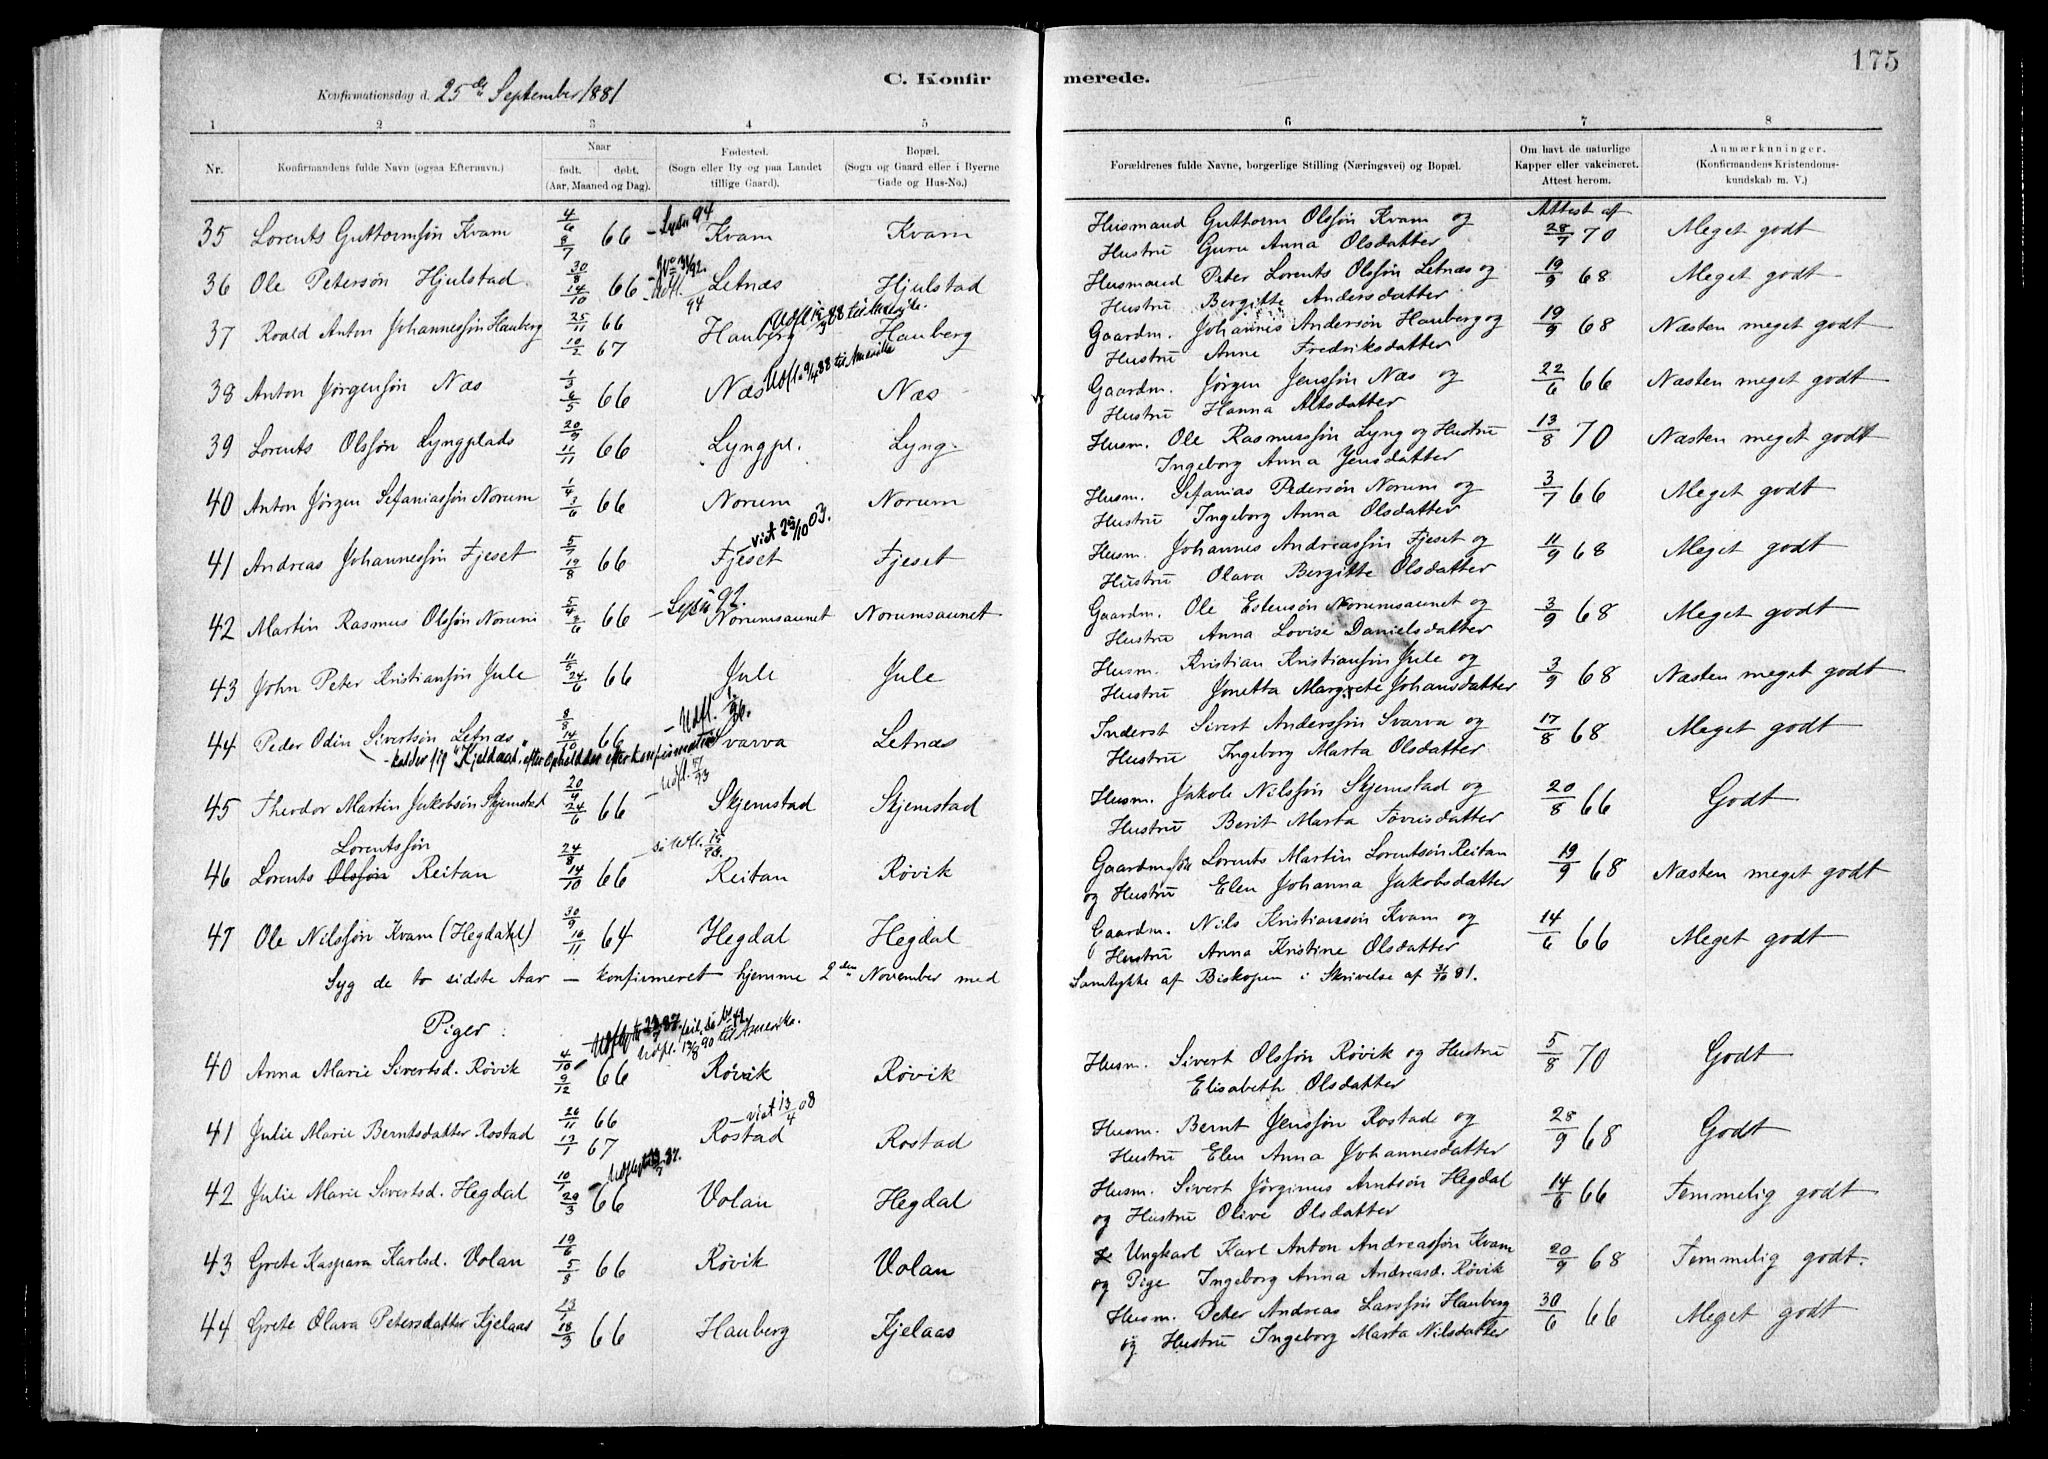 175
C. Konfirmerede.
Konfirmationsdag d. 25de September 1881
1 2 3 4 5 6 7 8
Nr. Konfirmandens fulde Navn (ogsaa Efternavn.) Naar født. døbt. (Aar, Maaned og Dag). Fødested. (Sogn eller By og paa Landet tillige Gaard). Bopæl. (Sogn og Gaard eller i Byerne Gade og Hus-No.) Forældrenes fulde Navne, borgerlige Stilling (Næringsvei) og Bopæl. Om havt de naturlige Kapper eller vakcineret. Attest herom. Anmærkninger. (Konfirmandens Kristendomskundskab m. V.)
35 Lorents Guttormsøn Kvam 4/6 8/7 66 Kvam Kvam Husmand Guttorm Olssøn Kvam og Attest af 28/7 70 Meget godt
Hustru Guru Anna Olsdatter
36 Ole Petersøn Hjulstad 30/8 14/10 66 Letnæs Hjulstad Husmand Peter Lorents Olssøn Letnæs og 19/9 68 Meget godt
Hustru Bergitte Andersdatter
Udfl. 94
37 Roald Anton Johannessøn Hauberg 25/11 66 10/2 67 Hauberg Hauberg Gaardm. Johannes Andersøn Hauberg og 19/9 68 Næsten meget godt
Hustru Anne Fredriksdatter
til Amerika.
38 Anton Jørgensøn Næs 1/3 6/5 66 Næs Næs Gaardm. Jørgen Jenssøn Næs og 22/6 66 Næsten meget godt
Hustru Hanna Altsdatter
Udfl. 9/4 88 til Amerika
39 Lorents Olssøn Lyngplads 20/9 11/11 66 Lyngpl. Lyng Husm. Ole Rasmussøn Lyng og Hustru 13/8 70 Næsten meget godt
Ingeborg Anna Jensdatter
40 Anton Jørgen Sefaniassøn Norum 1/4 3/6 66 Norum Norum Husm. Sefanias Pedersøn Norum og 3/7 66 Meget godt
Hustru Ingeborg Anna Olsdatter
41 Andreas Johannessøn Fjeset 5/7 19/8 66 Fjeset Fjeset Husm. Johannes Andreassøn Fjeset og 11/9 68 Meget godt
Hustru Olava Bergitte Olsdatter
42 Martin Rasmus Olssøn Norum 5/4 66 Norumsaunet Norumsaunet Gaardm. Ole Estensøn Norumsaunet og 3/9 68 Meget godt
Hustru Anna Lovise Danielsdatter
43 John Peter Kristiansøn Jule 11/5 24/6 66 Jule Jule Husm. Kristian Kristiansøn Jule og 3/9 68 Næsten meget godt
Hustru Jonetta Margrete Johansdatter
44 Peder Odin Sivertsøn Letnæs 8/8 14/10 66 Svarva Letnæs Inderst Sivert Anderssøn Svarva og 17/8 68 Meget godt
Hustru Ingeborg Marta Olsdatter
- kalder sig "Kjeldaas", efter konfirmation
45 Theodor Martin Jakobsøn Skjemstad 20/4 24/6 66 Skjemstad Skjemstad Husm. Jakob Nilssøn Skjemstad og 20/8 66 Godt
Hustru Berit Marta Tøvrisdatter
Lorentssøn
46 Lorents Olssøn Reitan 24/8 14/10 66 Reitan Røvik Gaardmssøn Lorents Martin Lorentsøn Reitan 19/9 68 Næsten meget godt
og Hustru Elen Johanna Jakobsdatter
47 Ole Nilssøn Kvam (Hegdahl) 30/9 64 Hegdal Hegdal Gaardm. Nils Kristianssøn Kvam og 14/6 66 Meget godt
Hustru Anna Kristine Olsdatter
Syg de to sidste Aar – konfirmeret hjemme 2den November med Samtykke af Biskopen i Skrivelse af 3/10 81.
Piger:
Udfl. 13/8 90 til Amerika.
40 Anna Marie Sivertsd. Røvik 4/10 9/12 66 Røvik Røvik Husm. Sivert Olssøn Røvik og Hustru 5/8 70 Godt
Elisabeth Olsdatter
- vist 13/4 08
41 Julie Marie Berntsdatter Rostad 26/11 66 13/1 67 Rostad Rostad Husm. Bernt Jenssøn Rostad og 28/9 68 Godt
Hustru Elen Anna Johannesdatter
42 Julie Marie Sivertsd. Hegdal 10/1 29/3 66 Volan Hegdal Husm. Sivert Jørginus Arntsøn Hegdal 14/6 66 Temmelig godt
og Hustru Olive Olsdatter
43 Grete Kaspara Karlsd. Volan 19/6 5/8 66 Røvik Volan Ungkarl Karl Anton Andreassøn Kvam 20/9 68 Temmelig godt.
og Pige Ingeborg Anna Andreasd. Røvik
44 Grete Olava Petersdatter Kjelaas 13/1 18/3 66 Hauberg Kjelaas Husm. Peter Andreas Larssøn Hauberg 30/6 66 Meget godt
og Hustru Ingeborg Marta Nilsdatter